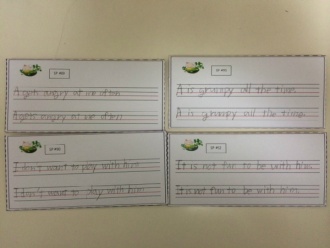 A gets angry at me often
A gets angry at me often
A is grumpy all the time
A is grumpy all the time
I don't want to play with him
I don't want to play with him
It is not fun to be with him.
It is not fun to be with him.